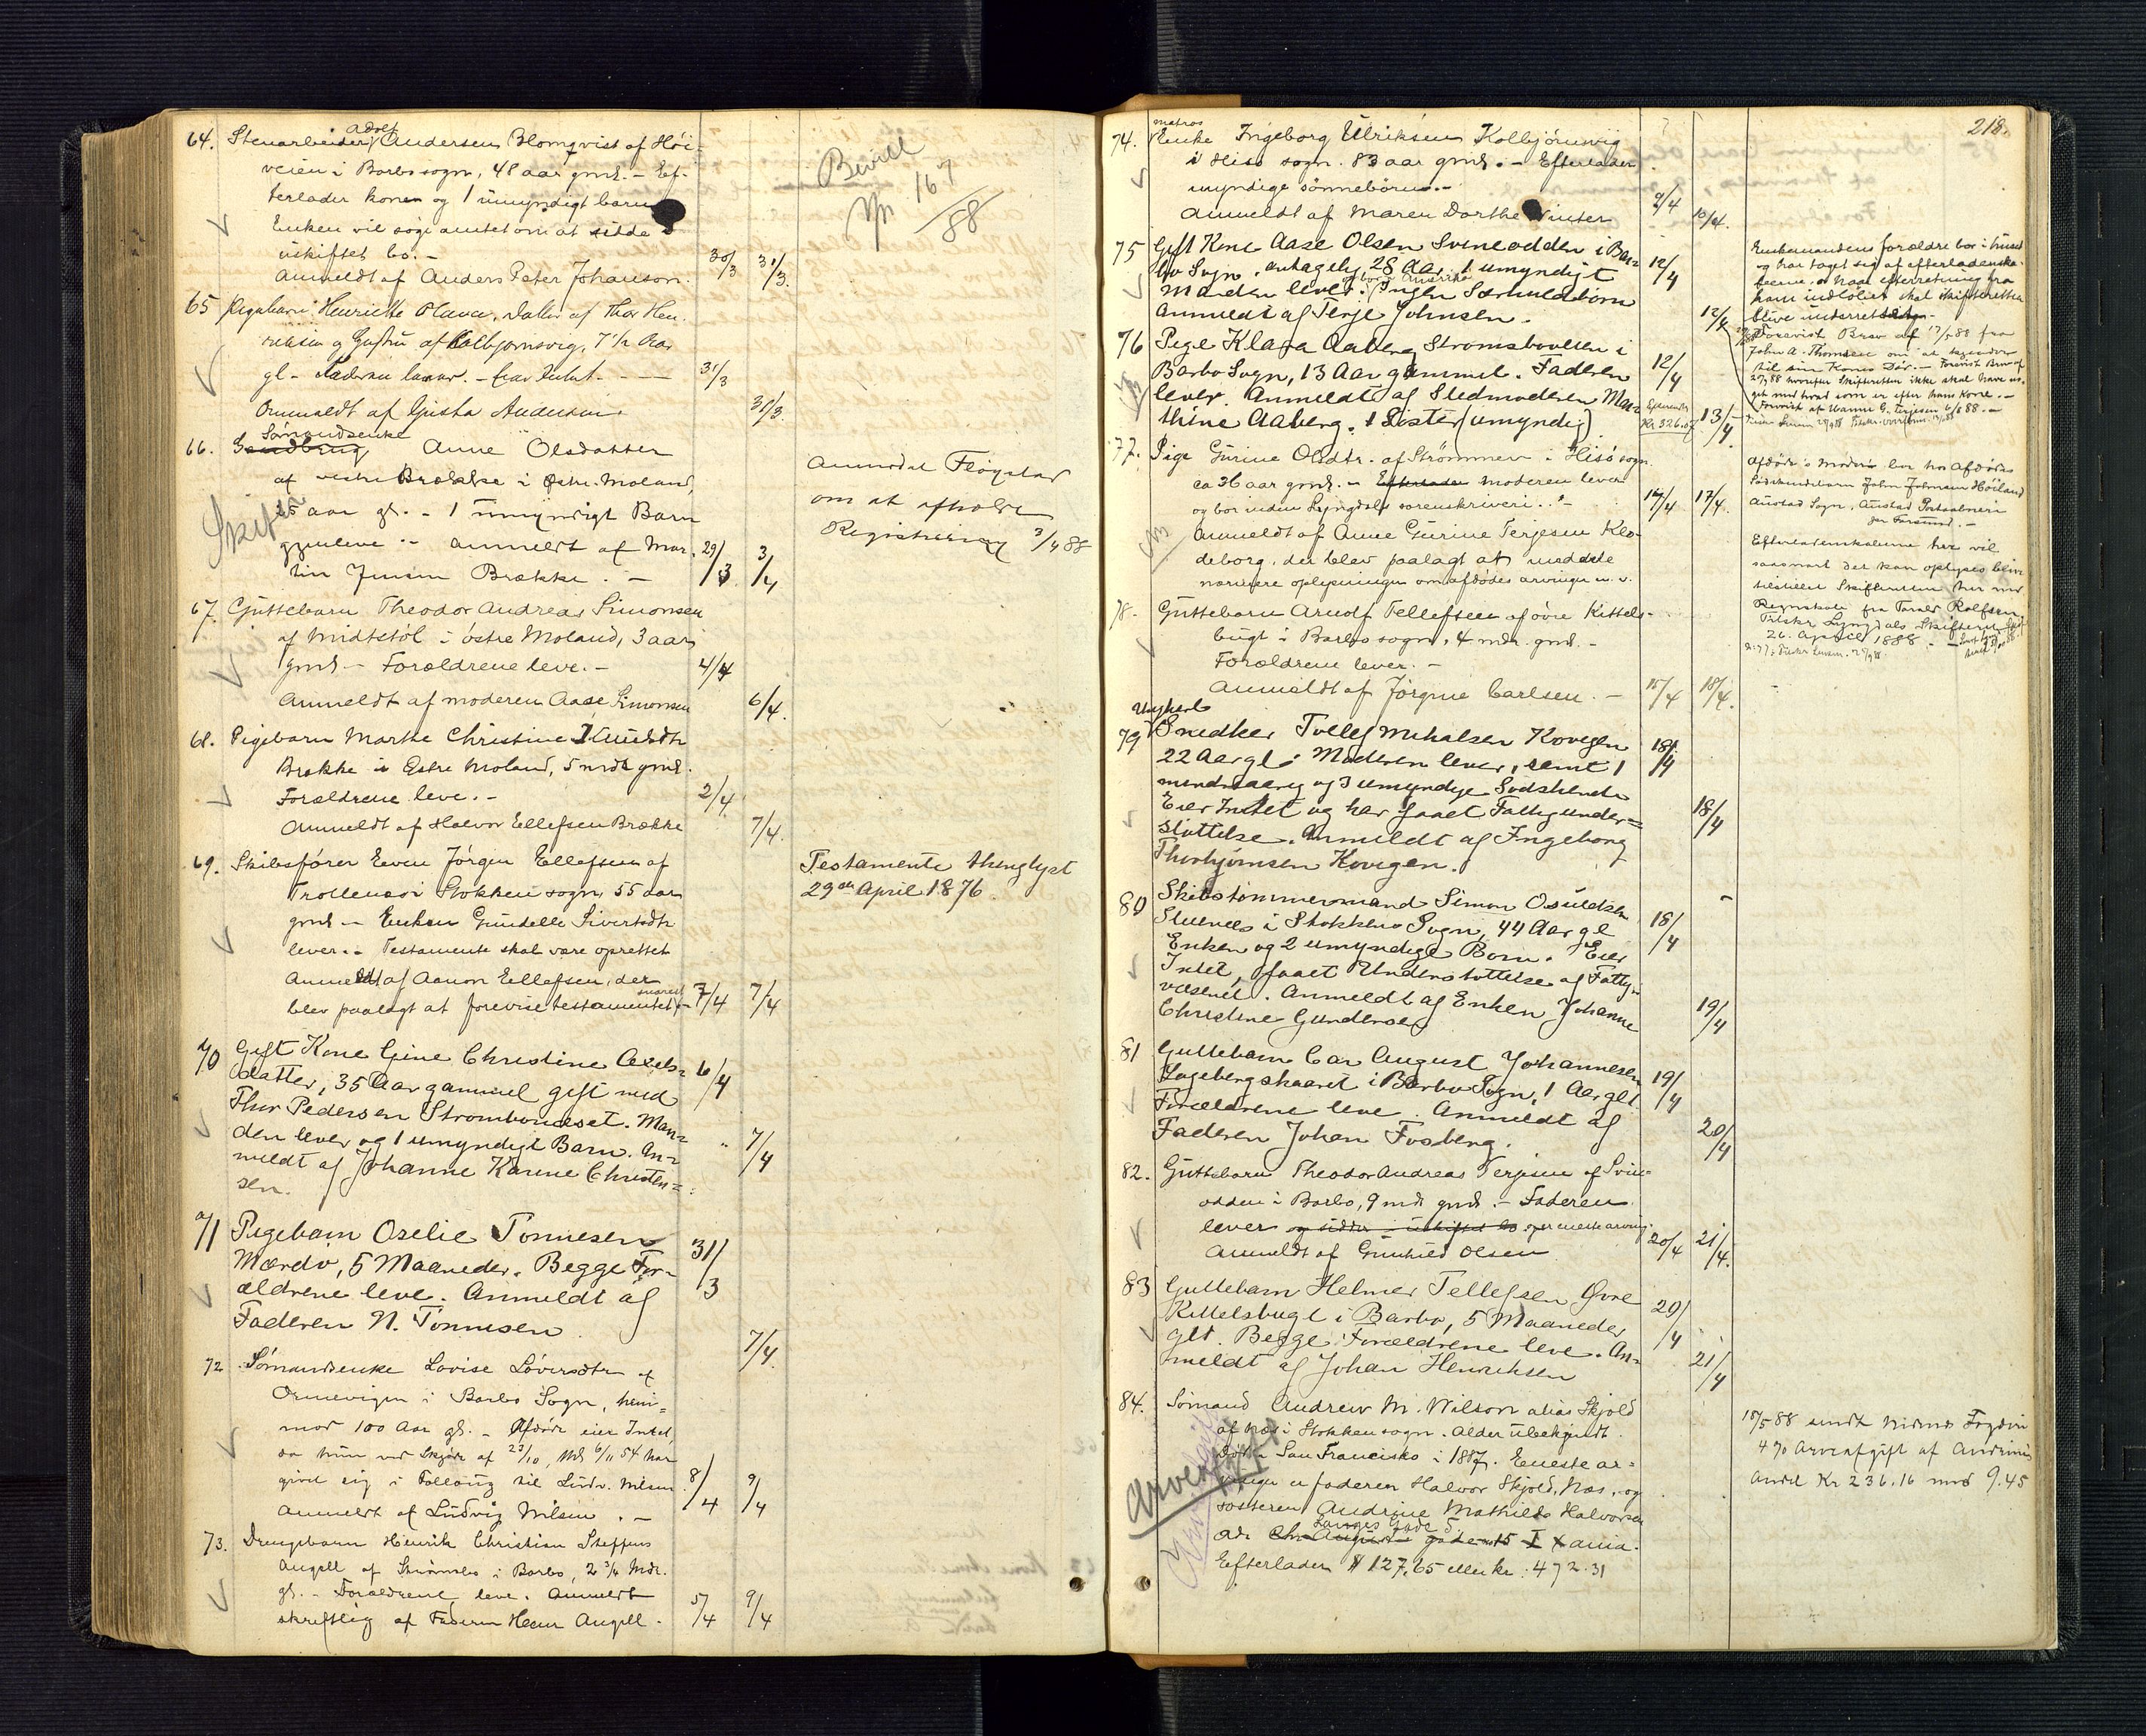 64. Stenarbeider Adolf Andersen Blomqvist af Höi-
veien i Barbo sogn, 48 aar gml. - Ef-
terlader konen og 1 umyndigt barn
Enken vil söge amtet om at sidde i
uskiftet bo. -
Anmeldt af Anders Peter Johanson. 30/3 31/3.
Bevill
167/88
65 Pigebarn Henriette Olava, datter af Thor Hen-
riksen og Hustru af Kolbjornsvig, 7 1/2 Aar
gl - Faderen lever. - 31/3
Anmeldt af Gusta Andersen. 31/3.
66. Sömandsenke Anne Olsdatter
af vestre Brække i Östre Moland,
25 aar gl. - 1 umyndigt Barn
gjenleve - anmeldt af Mar-
tin Jensen Brække. - 29/3 3/4
Skifter
Anmodet Flögstad
om at afholde
Registrering 3/4 88
67. Guttebarn Theodor Andreas Simonsen
af Midtstöl i östre Moland, 3 aar
gml - Forældrene leve. - 4/4
Anmeldt af moderen Aase Simonsen 6/4.
68. Pigebarn Marthe Christine Knudsdtr
Brække i Östre Moland, 5 mdr gml.
Forældrene leve. - 2/4.
Anmeldt af Halvor Ellefsen Brække 7/4.
69. Skibsförer Even Jörgen Ellefsen af
Trollenæs i Stokken sogn, 55 aar
gml - Enken Gundelle Sivertsdtr
lever. - Testamente skal være oprettet
Anmeldt af Aanon Ellefsen, der
blev paalagt at forevise testamentet snarest - 7/4 7/4
Testamente thinglyst
29de April 1876.
70 Gift Kone Gine Christine Axels-
datter, 35 Aar gammel gift med
Thor Pedersen Strømbuneset. Man-
den lever og 1 umyndigt Barn. An-
meldt af Johanne Karine Christen-
sen. 6/4 7/4
71 Pigebarn Oselie Tonnesen
Mærdö, 5 Maaneder. Begge For-
ældrene leve. Anmeldt af
Faderen N. Tonnesen 31/3 7/4.
72. Sömandsenke Lovise Löversdtr af
Ormevigen i Barbo Sogn, hen-
mod 100 Aar gl. - Afdöde eier Intet
da hun ved Skjöde af 23/10, thl 6/11 54 har
givet sig i Follaug til Ludv. Nilsen 8/4 9/4
Anmeldt af Ludvig Nilsen. -
73. Drengebarn Henrik Christian Steffens
Angell af Strömsbo i Barbo, 2 3/4 Mdr.
gl. - Forældrene leve. Anmeldt
skriftlig af Faderen Henr Angell. 5/4 9/4
218.
74. Matros Enke Ingeborg Ulriksen Kolbjörnsvig
i Hisö sogn. 83 aar gml. - Efterlader
myndige sönnebörn. -
Anmeldt af Maren Dorthe Winter 9/4 10/4.
75 Gift Kone Aase Olsen Svineodden i Bar-
bo Sogn, antagelig 28 Aar. 1 umyndigt
Manden lever og bor i Amerika. Ingen Særkuldbörn
Anmeldt af Terje Johnsen. 12/4 12/4
Enkemandens forældre bor i huset
og har taget sig af efterladenska-
berne, og naar efterretning fra
ham indlöber skal skifteretten
blive underrettet. -
Forevist Brev af 17/5 88 fra
John A. Thomsen
76 Pige Klara Aaberg Strømsbouelsen i
Barbo Sogn, 13 Aar gammel. Faderen
lever. Anmeldt af Stedmoderen Mar-
thine Aaberg. 1 Sister (umyndig) 12/4 13/4.
Efterlader
Kr 326.07
77. Pige Gurine Olsdtr. af Strömmen i Hisö sogn.
ca 36 aar gml. - Efterlader moderen lever
og bor inden Lyngdals sorenskriveri. -
Anmeldt af Anne Gurine Terjesen Klo-
deborg, der blev paalagt at meddele
nærmere oplysninger om afdödes arvinger m. v. 17/4 17/4.
Afdödes moder bor hos Afdödes
Södskendebarn John Johnsen Höiland
Austad Sogn, Austad Postaabneri
per Farsund. -
Efterladenskaberne her vil
saasnart det kan oplyses blive
tilstillet Skifteretten her med
Regnskab fra Tarald Rolfsen,
Tilskr. Lyngdals Skifteret
26. April 1888. -
78. Guttebarn Arnolf Tellefsen af övre Kittels-
bugt i Barbo sogn, 4 mdr. gml. -
Forældrene lever. -
Anmeldt af Jörgine Carlsen. - 15/4 18/4.
79 Ungkarl Snedker Tellef Mikalsen Kovegen
22 Aar gl. Moderen lever, samt 1
mindreaarig og 3 umyndige Sødskende
Eier Intet og har faaet Fattigunder-
støttelse. Anmeldt af Ingeborg
Thorbjørnsen Kovegen. 18/4 18/4
80 Skibstømmermand Simon Osuldsen
Stuenes i Stokkens Sogn, 44 Aar gl
Enken og 2 umyndige Børn. Eier
Intet, faaet Understøttelse af Fattig-
væsenet. Anmeldt af Enken Johanne
Christine Gundersen 18/4 19/4
81 Guttebarn Carl August Johannesen
Lagebergskaaret i Barbo Sogn, 1 Aar glt.
Forældrene leve. Anmeldt af
Faderen Johan Fosberg. 19/4 20/4
82. Guttebarn Theodor Andreas Terjesen af Svin-
odden i Barbo, 9 mdr gml. - Faderen
lever og sidder i uskiftet bo og er eneste arving.
Anmeldt af Gunhild Olsen 20/4 21/4.
83 Guttebarn Helmer Tellefsen Øvre
Kittelsbugt i Barbo, 5 Maaneder
glt. Begge Forældrene leve. An-
meldt af Johan Henriksen 20/4 21/4
84. Sömand Andrew M. Wilson alias Skjold
af Næs i Stokken sogn. Alder ubekjendt.
Död i San Francisko i 1887. Eneste ar-
vinger er faderen Halvor Skjold, Næs, og
sösteren Andrine Mathilde Halvorsen
adr Langes Gade 5 Chr. August gade no 15 I Xania.
Efterlader $ 127,65 eller kr. 472.31
Arveafgift
18/5 88 sendt Nidenes Fogderi
4% Arveafgift af Andrines
Andel Kr 236.16 med 9.45